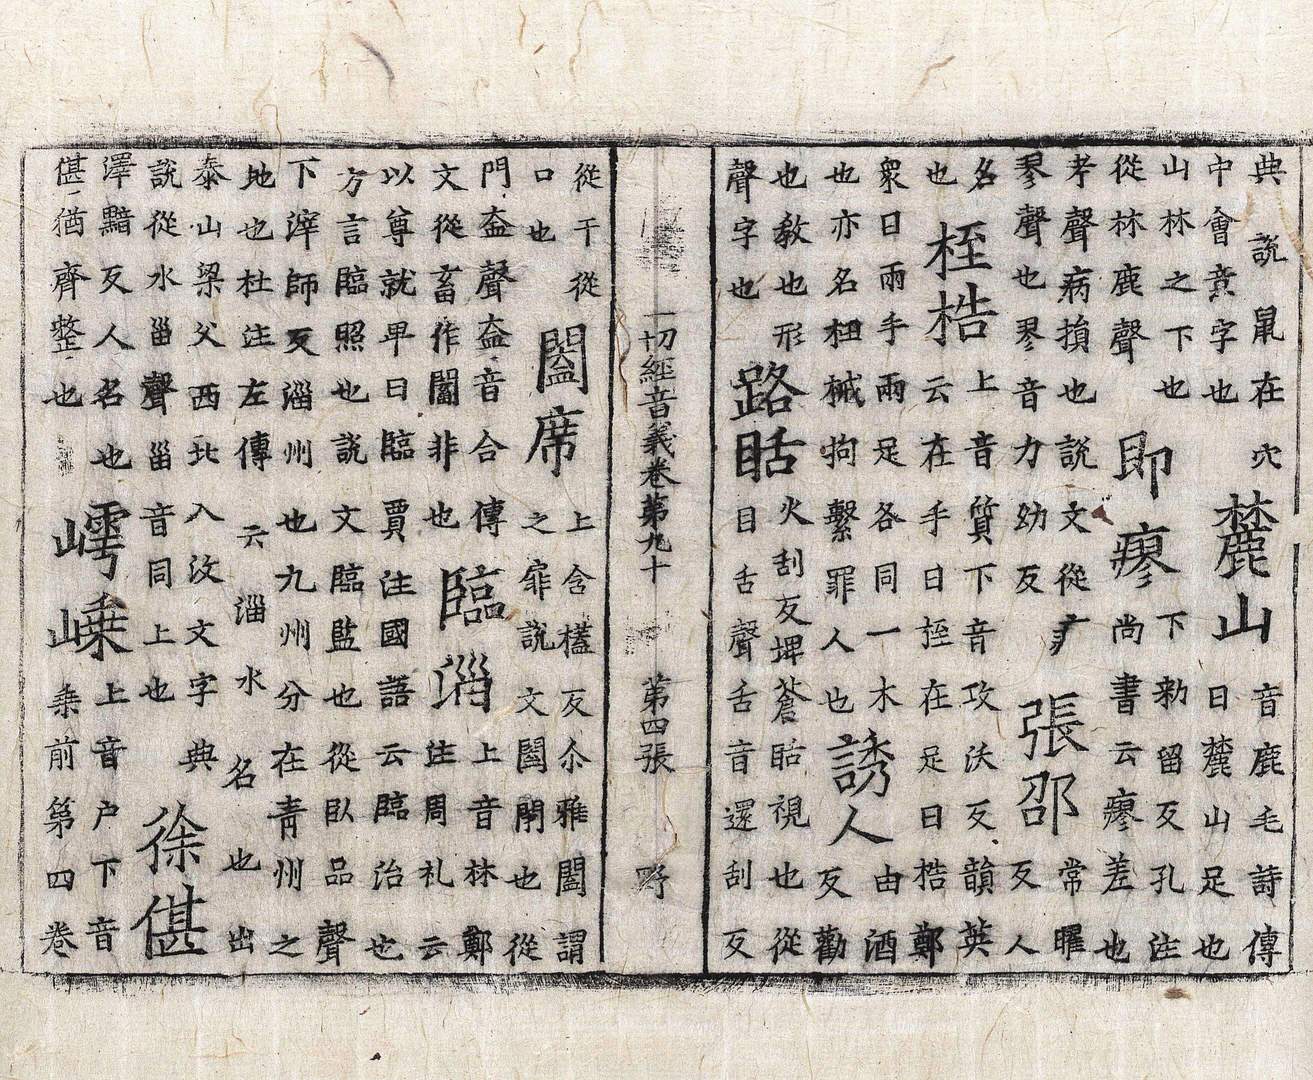 典說鼠在穴
中會意字也
麓山
音鹿毛詩傳
曰麓山足也
山林之下也
從林鹿聲
即瘳
下勑留反孔注
尚書云瘳差也
考聲病損也說文從疒
翏聲也翏音力幼反
張邵
常曜
反人
名
也
桎梏
上音質下音攻沃反韻英
云在手曰桎在足曰梏鄭
衆曰兩手兩足各同一木
也亦名杻械拘繫罪人也
誘人
由酒
反勸
也教也形
聲字也
路䀨
火刮反埤蒼䀨視也從
目舌聲舌音還刮反
一切經音義卷第九十 第四張 野
從干從
口也
闔席
上含榼反尒雅闔謂
之扉說文闔閉也從
門盍聲盍音合傳
文從畜作闔非也
臨淄
上音林鄭
注周礼云
以尊就卑曰臨賈注國語云臨治也
方言臨照也說文臨監也從臥品聲
下滓師反淄州也九州分在青州之
地也杜注左傳云淄水名也出
泰山梁父西北入汶文字典
說從水甾聲甾音同上也
徐偡
澤黯反人名也
偡猶齊整也
嶀嵊
上音户下音
乗前第四卷